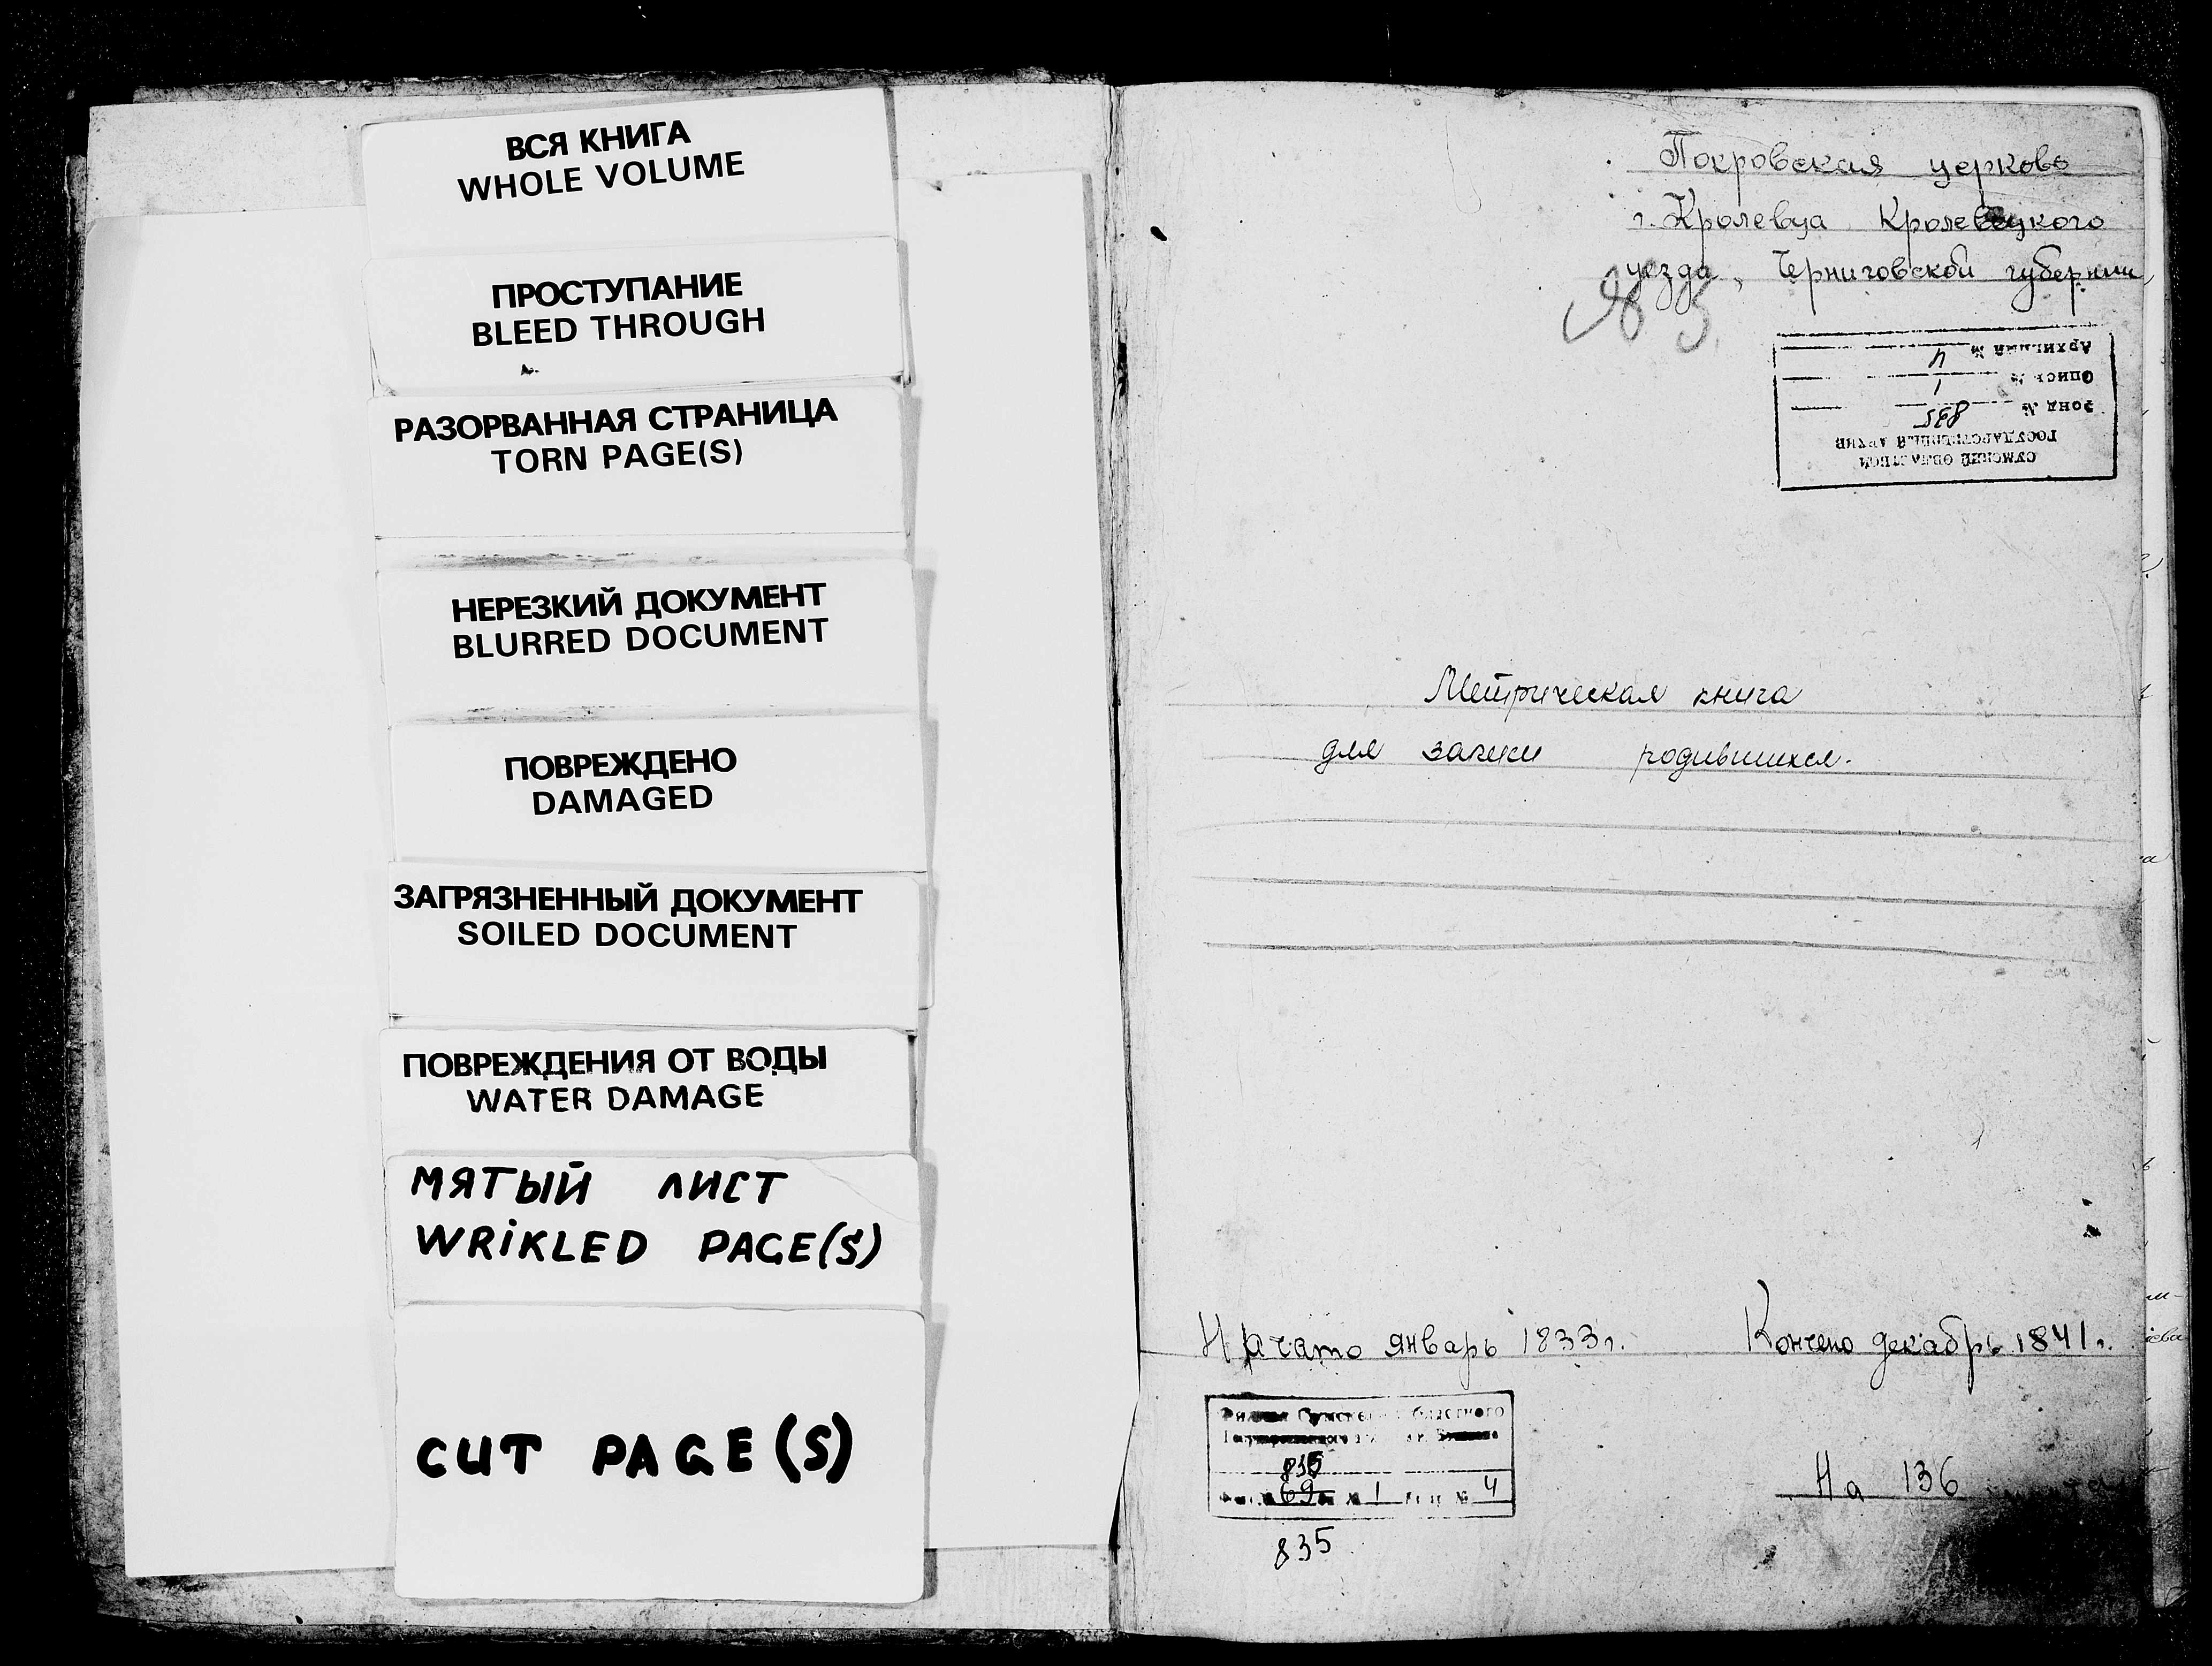 ВСЯ КНИГА
WHOLE VOLUME
ПРОСТУПАНИЕ
BLEED THROUGH
РАЗОРВАННАЯ СТРАНИЦА
TORN PAGE(S)
НЕРЕЗКИЙ ДОКУМЕНТ
BLURRED DOCUMENT
ПОВРЕЖДЕНО
DAMAGED
ЗАГРЯЗНЕННЫЙ ДОКУМЕНТ
SOILED DOCUMENT
ПОВРЕЖДЕНИЯ ОТ ВОДЫ
WATER DAMAGE
МЯТЫЙ ЛИСТ
WRiKLED PAGE(S)
CUT PAGE(S)
Покровская церковь
г. Кролевца Кролевецкого
уезда, Черниговской губернии
СУМСКИЙ ОБЛАСТНОЙ
ГОСУДАРСТВЕННЫЙ АРХИВ
Фонд № 835
Опись № 1
Архивный № 4
Метрическая книга
для записи родившихся.
Начато январь 1833г. Кончено декабрь 1841г.
Филиал Сумского областного
835
69 № 1 № 4
835
На 136